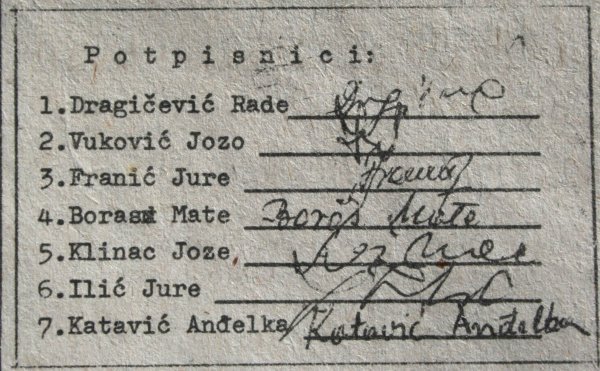 Potpisnici:
1.Dragičević Rade
2.Vuković Jozo
3.Franić Jure
4.Boras Mate Boras Mate
5.Klinac Joze
6.Ilić Jure
7.Katavić Anđelka Katavić Anđelka